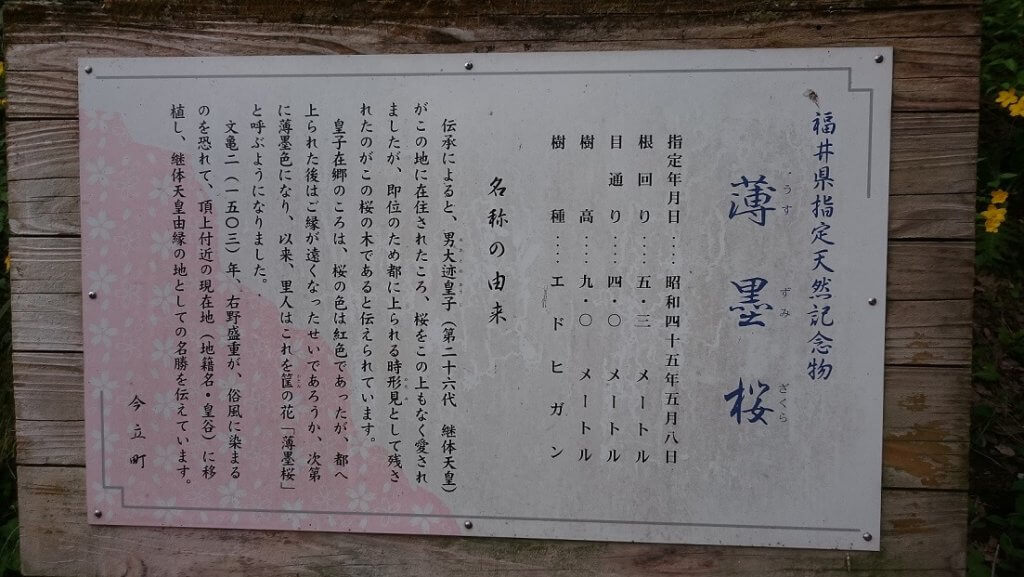 福井県指定天然記念物
薄墨桜
うす ずみ ざくら
指定年月日‥‥昭和四十五年五月八日
根回り‥‥五・三メートル
目通り‥‥四・〇メートル
樹高‥‥九・〇メートル
樹種‥‥エドヒガン
名称の由来
伝承によると、男大迹皇子（第二十六代 継体天皇）
がこの地に在住されたころ、桜をこの上もなく愛され
ましたが、即位のため都に上られる時形見として残さ
れたのがこの桜の木であると伝えられています。
皇子在郷のころは、桜の色は紅色であったが、都へ
上られた後はご縁が遠くなったせいであろうか、次第
に薄墨色になり、以来、里人はこれを筐の花「薄墨桜」
と呼ぶようになりました。
文亀二（一五〇三）年、右野盛重が、俗風に染まる
のを恐れて、頂上付近の現在地（地籍名・皇谷）に移
植し、継体天皇由縁の地としての名勝を伝えています。
今立町